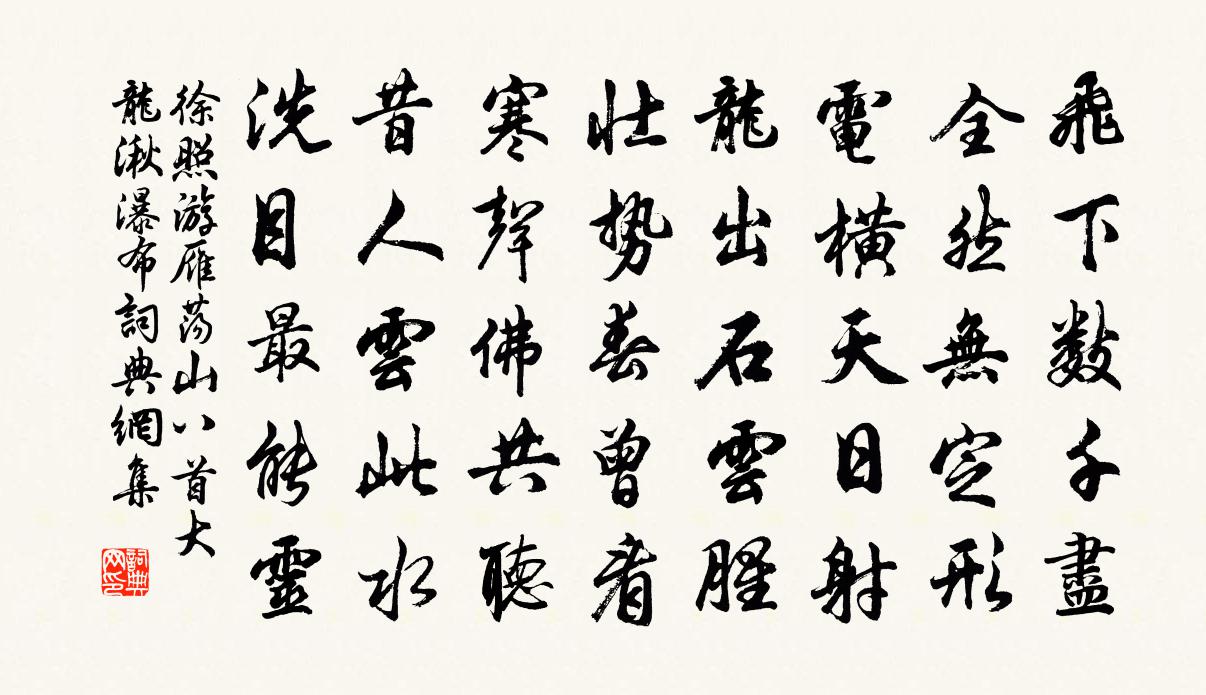 飛下數千盡
全然無定形
電橫天日射
龍出石雲腥
壯勢春曾看
寒聲佛共聽
昔人雲此水
洗目最能靈
徐照游雁蕩山八首大
龍湫瀑布詞典網集
詞典
网印